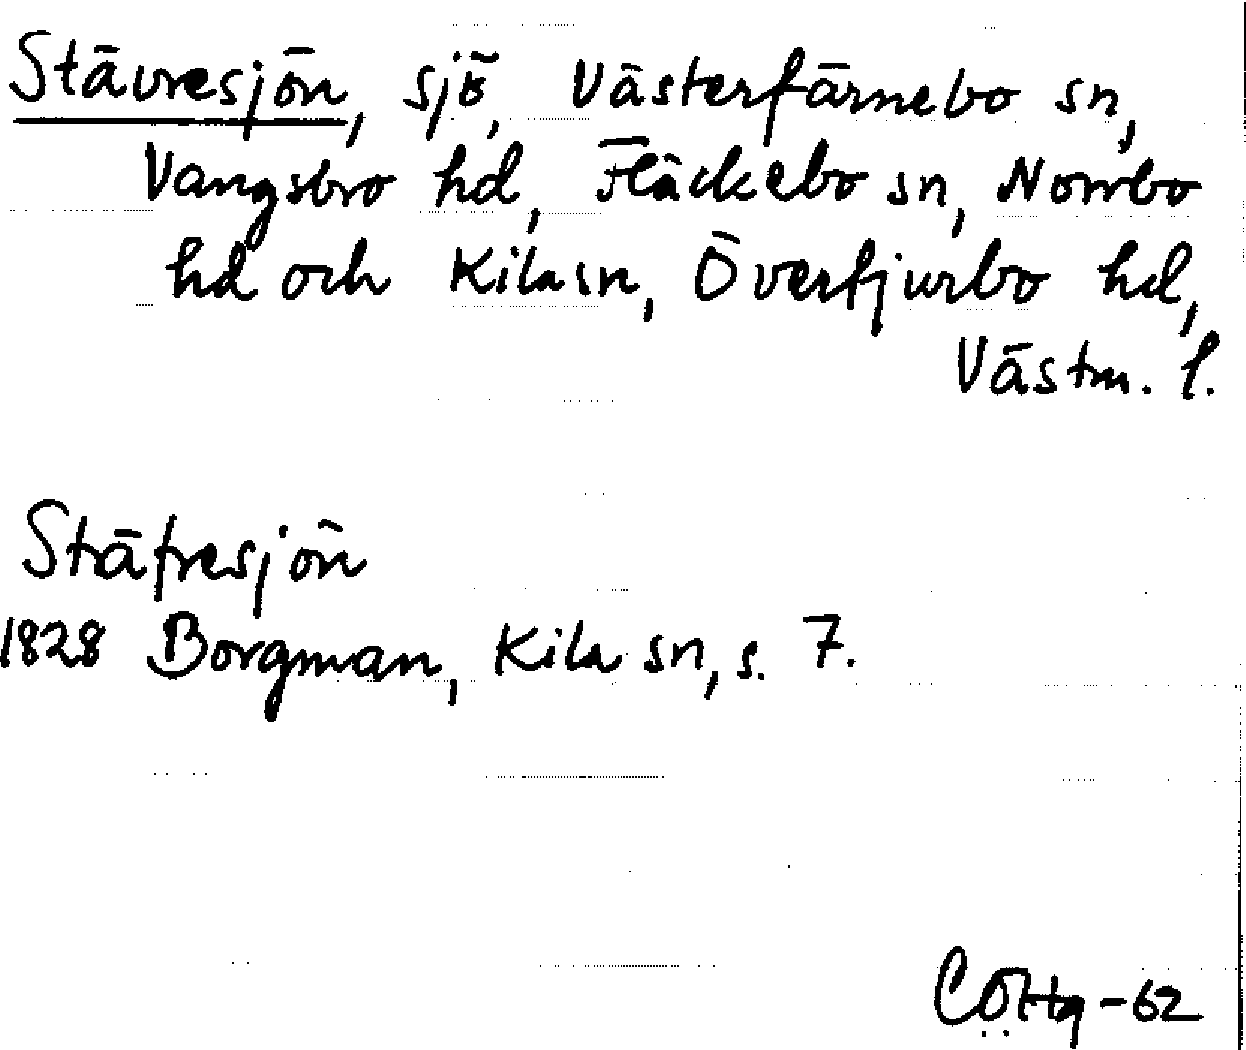 Stävresjön, sjö, Västerfärnebo sn,
Vangsbro hd, Fläckebo sn, Norrbo
hd och Kila sn, Övertjurbo hd,
Västm. l.
Stäfresjön
1828 Borgman, Kila sn, s. 7.
-62